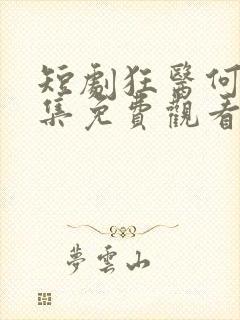 短劇狂醫何
集免費觀看
夢雲山